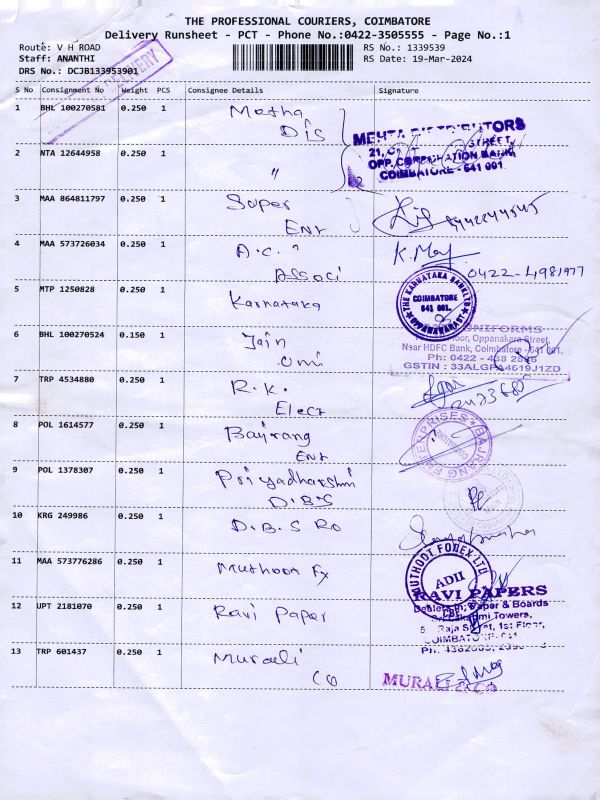 THE PROFESSIONAL COURIERS, COIMBATORE
Delivery Runsheet - PCT - Phone No.:0422-3505555 - Page No.:1
Route: V H ROAD RS No.: 1339539
Staff: ANANTHI RS Date: 19-Mar-2024
DRS No.: DCJB133953901
DELIVERY
S No Consignment No Weight PCS Consignee Details Signature
1 BHL 100270581 0.250 1 Metha
Dis
MEHTA DISTRIBUTORS
21, STREET,
OPP. CORPORATION BANK,
COIMBATORE - 641 001.
2 NTA 12644958 0.250 1 "
3 MAA 864811797 0.250 1 Super
Ent
4 MAA 573726034 0.250 1 A.C.
Associ
0422-4981977
5 MTP 1250828 0.250 1 Karnataka
THE KARNATAKA BANK LTD
COIMBATORE
641 001.
6 BHL 100270524 0.150 1 Jain
Uni
UNIFORMS
Floor, Oppanakara Street,
Near HDFC Bank, Coimbatore - 641 001.
Ph: 0422 - 438
GSTIN : 33ALGPA4619J1ZD
7 TRP 4534880 0.250 1 R.K.
Elect
8 POL 1614577 0.250 1 Bajrang
Ent
BAJRANG ENTERPRISES
9 POL 1378307 0.250 1 Priyadharshni
D.B.S
10 KRG 249986 0.250 1 D.B.S Ro
11 MAA 573776286 0.250 1 Muthoot Fx
MUTHOOT FOREX LTD
ADII
12 UPT 2181070 0.250 1 Ravi Paper
RAVI PAPERS
Dealers in: Paper & Boards
Towers,
Raja Street, 1st Floor,
COIMBATORE-641
13 TRP 601437 0.250 1 Murali
Co
MURALI & CO